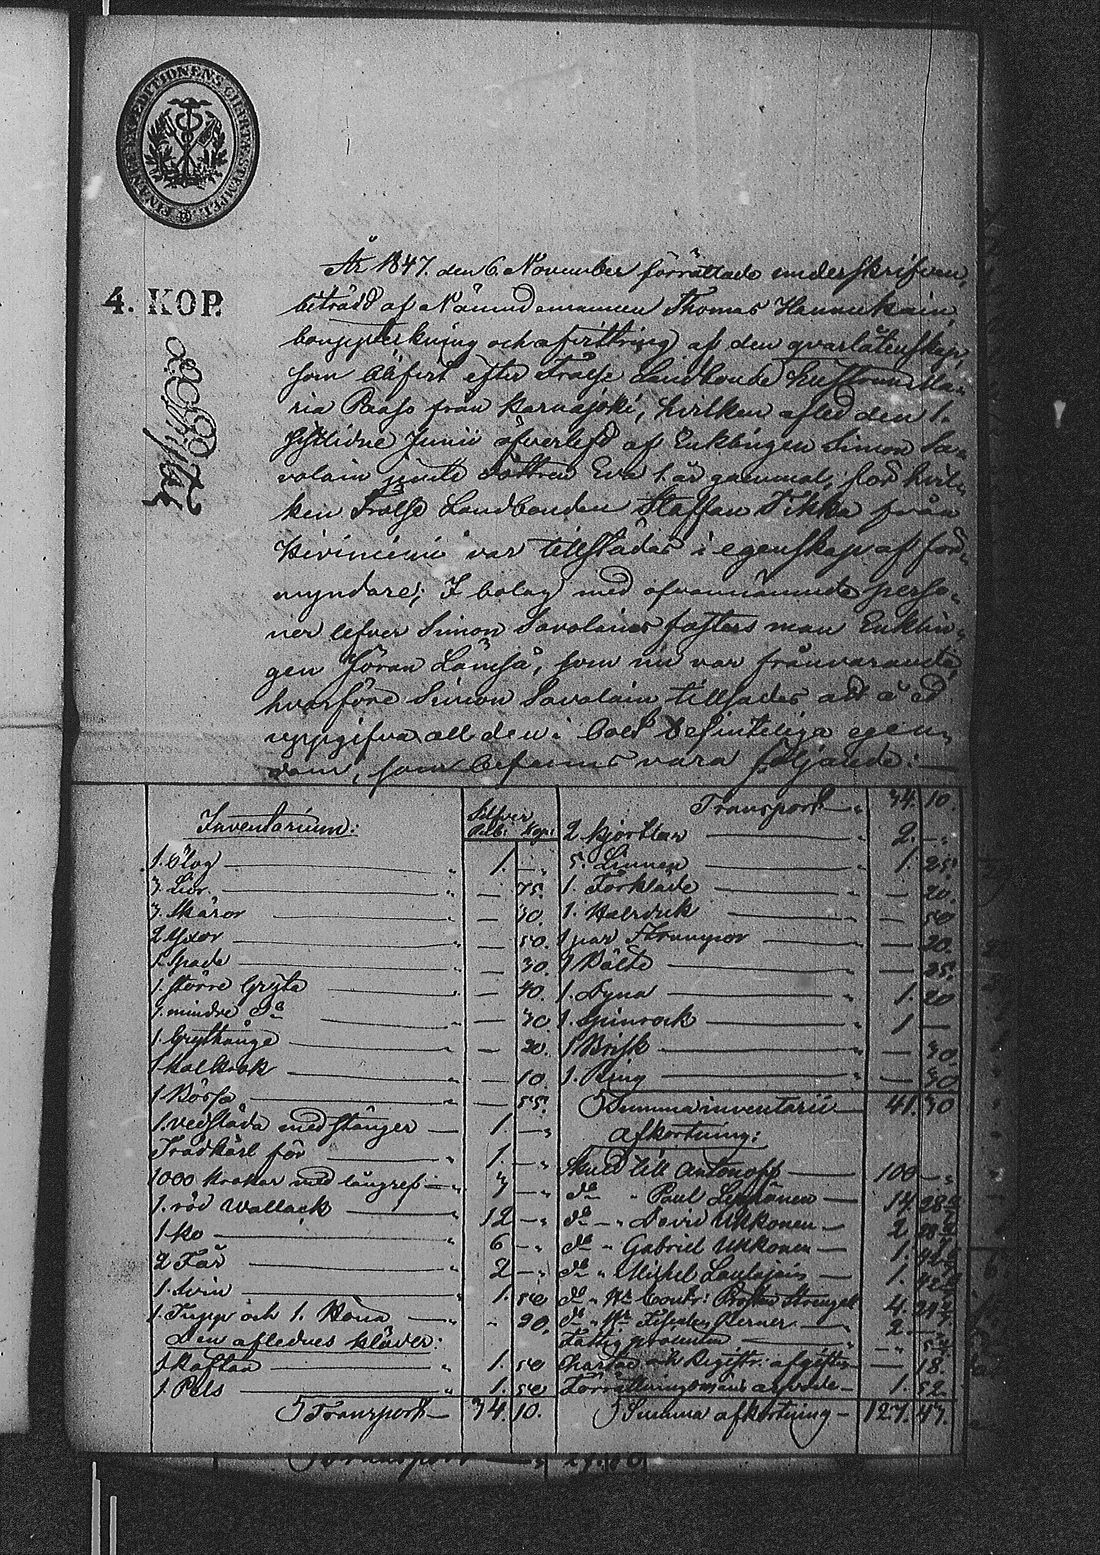 FINANCE EXPEDITIONENS CHARTÆ STEMPEL
4. KOP.
År 1847. den 6 November förrättade underskrifven,
biträdd af Nämndemannen Thomas Hannukain,
bouppteckning och afvittring af den qvarlåtenskap,
som blifvit efter Frälse Landbonde hustrun Ma-
ria Paaso från Karvajoki, hvilken afled den 1.
sistlidne Junii öfverlefd af Enklingen Simon Sa-
volain jemte dottren Eva 1. år gammal, för hvil-
ken Frälse Landbonden Staffan Tikka från
Hiviniemi var tillstädes i egenskap af för-
myndare; I bolag med ofvannämnde perso-
ner lefver Simon Savolains fasters man Enklin-
gen Jöran Lämsä, som nu var frånvarande
hvarföre Simon Savolain tillsades att å ed
uppgifva all den i boet befinteliga egen-
dom, som befanns vara följande:
Inventarium: Silfver Rub: Kop:
1. Plog 1. -
3. Liar - 75.
3. Skäror - 30.
2 Yxor - 50.
1. Spade - 30.
1. större Gryta - 40.
1. mindre do - 30
1. Grythänge - 20.
1. - 10.
1. Bössa - 55.
1. med stänger 1. -
Trädkäril för 1. -
1000 krokar med långref 3 -
1. röd Wallack 12 -
1. Ko 6 -
2 Får 2 -
1. Svin 1. 50
1. Tupp och 1. Höna " 20.
Den aflednes kläder:
1 Kaftan 1. 50
1. Pels 1. 50
Transport 34. 10.
Transport 34. 10.
2. kjortlar 2. -
5. Linnen 1. 25.
1. Förkläde - 20.
1. Halsduk - 50
1 par Strumpor - 20.
1 Bälte - 25.
1. Dyna 1. 20
1. Spinrock 1 -
1 Brisk - 30.
1. Ring - 30.
Summa inventarii 41. 30
Afkortning:
Skuld till Antonoff 100 -
do " Paul 14. 28
do " David Ukkonen 2
do " Gabriel Ukkonen 1.
do " Michel 1.
do " 4.
do " 2.
Fattig procenten
Chartæ och Registr: afgifter - 18.
Förrättningsmäns arvode 1. 52
Summa afkortning 127. 47.
Transport